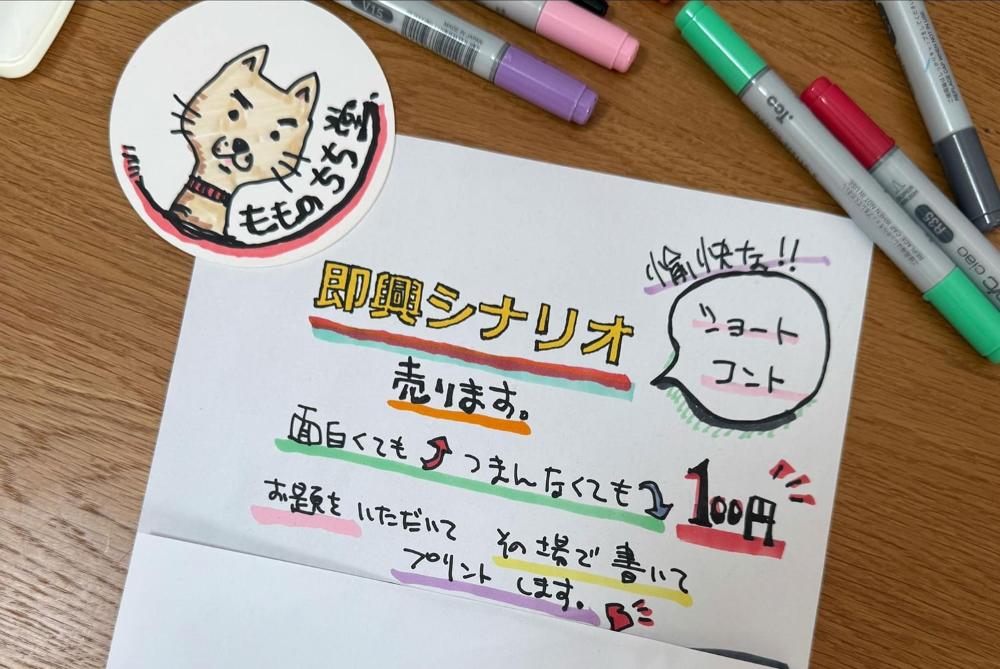 もものちち💢
即興シナリオ
売ります。
愉快な!!
ショート
コント
面白くても つまんなくても 100円
お題を いただいて その場で 書いて
プリント します。
V15
MADE IN JAPAN
R35
ciao